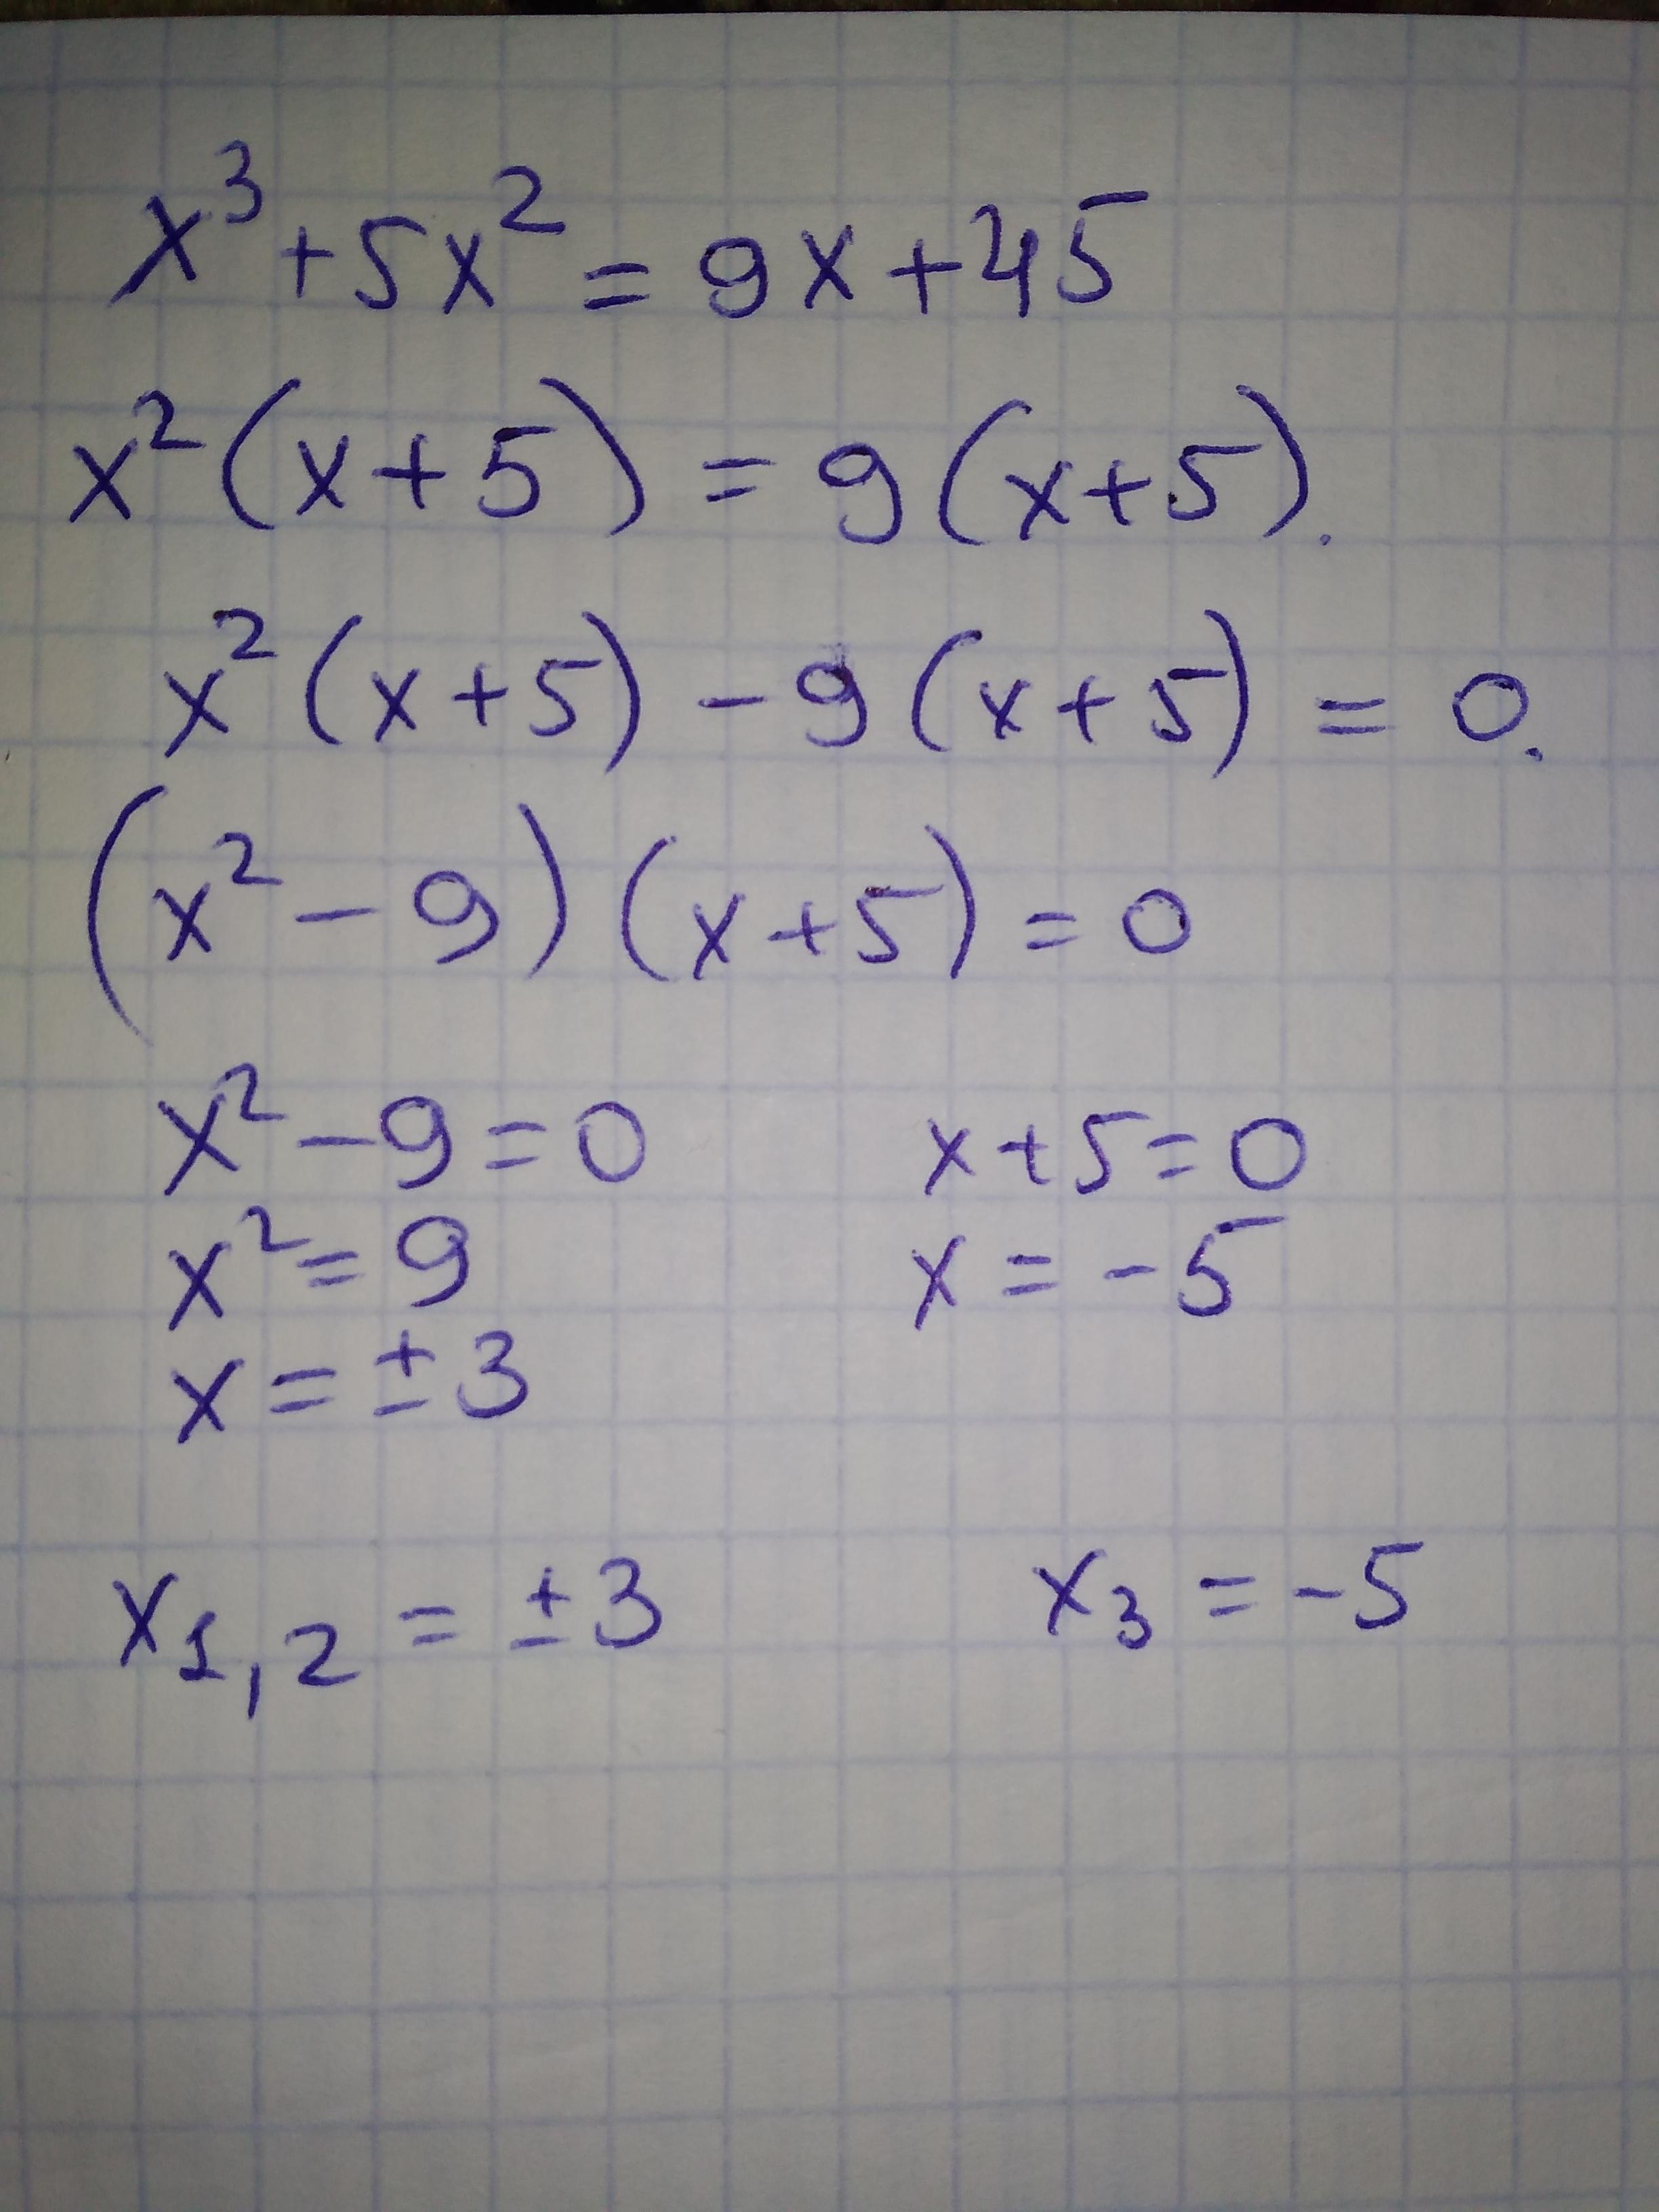 x³+5x²=9x+45
x²(x+5)=9(x+5).
x²(x+5)-9(x+5)=0.
(x²-9)(x+5)=0
x²-9=0 x+5=0
x²=9 x=-5
x=±3
x₁,₂=±3 x₃=-5